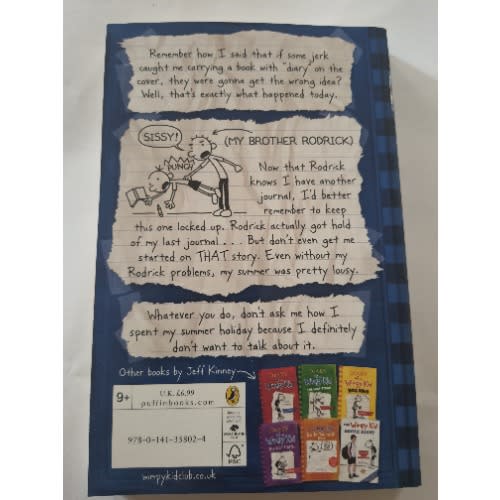 Remember how I said that if some jerk
caught me carrying a book with "diary" on the
cover, they were gonna get the wrong idea?
Well, that's exactly what happened today.
SISSY!
(MY BROTHER RODRICK)
PUNCH!
Now that Rodrick
knows I have another
journal, I'd better
remember to keep
this one locked up. Rodrick actually got hold
of my last journal . . . But don't even get me
started on THAT story. Even without my
Rodrick problems, my summer was pretty lousy.
Whatever you do, don't ask me how I
spent my summer holiday because I definitely
don't want to talk about it.
Other books by Jeff Kinney
9+
U.K. £6.99
puffinbooks.com
978-0-141-35802-4
FSC
wimpykidclub.co.uk
Wimpy Kid
Wimpy Kid
Wimpy Kid
Wimpy Kid